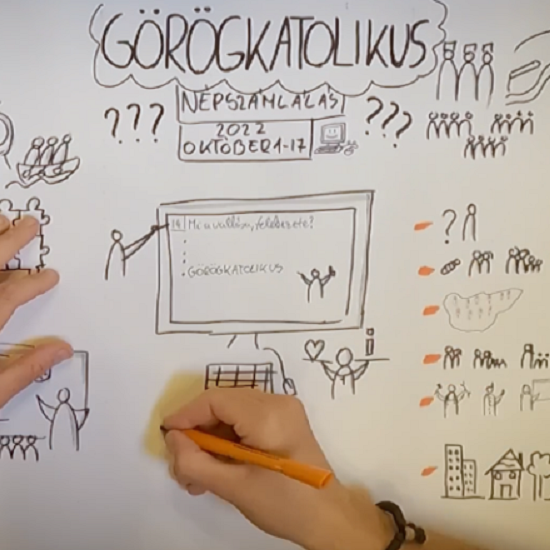 GÖRÖGKATOLIKUS
NÉPSZÁMLÁLÁS
??? ???
2022
OKTÓBER 1-17
34 Mi a vallása, felekezete?
GÖRÖGKATOLIKUS
i
?